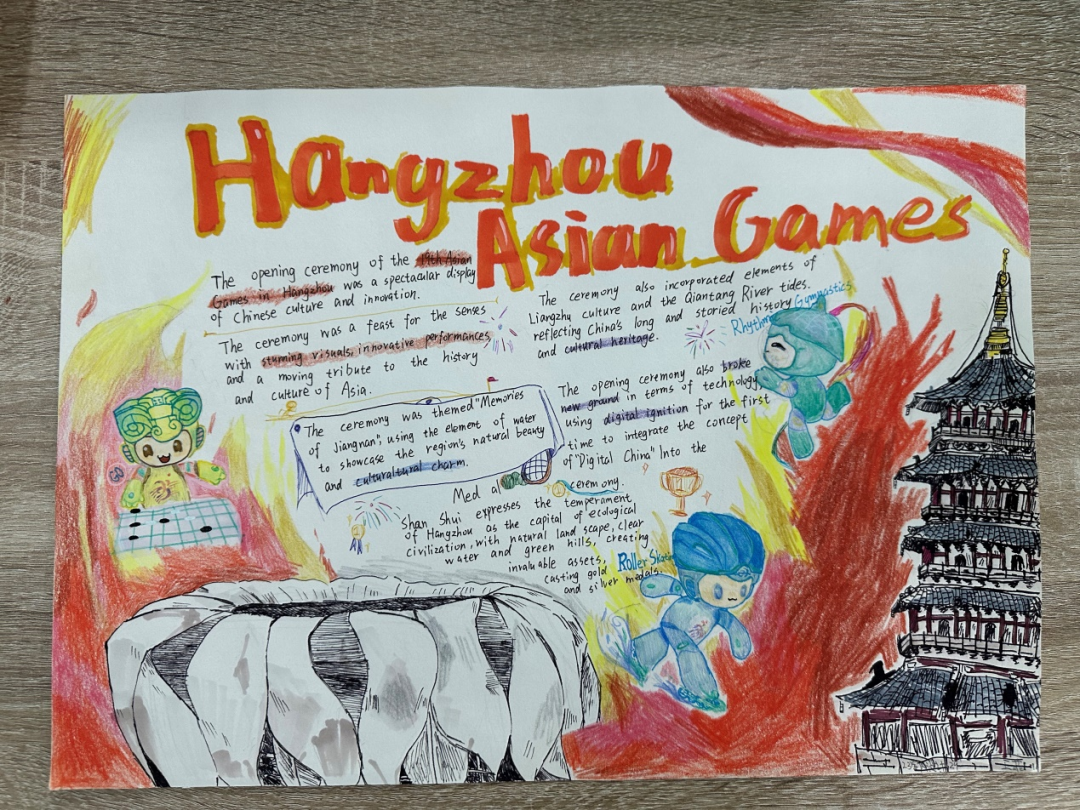 Hangzhou
Asian Games
The opening ceremony of the 19th Asian
Games in Hangzhou was a spectacular display
of Chinese culture and innovation.
The ceremony was a feast for the senses
with stunning visuals, innovative performances,
and a moving tribute to the history
and culture of Asia.
The ceremony was themed "Memories
of Jiangnan", using the element of water
to showcase the region's natural beauty
and culturaltural charm.
The ceremony also incorporated elements of
Liangzhu culture and the Qiantang River tides.
reflecting China's long and storied history
and cultural heritage.
Rhythmic Gymnastics
The opening ceremony also broke
new ground in terms of technology,
using digital ignition for the first
time to integrate the concept
of "Digital China" Into the
ceremony.
Medal
Shan Shui expresses the temperament
of Hangzhou as the capital of ecological
civilization, with natural land scape, clear
water and green hills, creating
invaluable assets,
casting gold
and silver medals.
Roller Skating